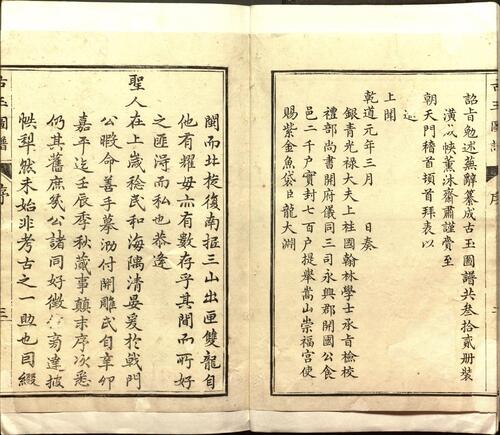 詔旨勉述蕪辭纂成古玉圖譜共叁拾貳册裝
潢成帙薰沐齋肅謹賫至
朝天門稽首頓首拜表以
上聞
乾道元年三月 日奏
銀青光禄大夫上柱國翰林學士承旨檢校
禮部尚書開府儀同三司永興郡開國公食
邑二千户實封七百户提舉嵩山崇福宫使
賜紫金魚袋臣龍大淵
閩而北旋復南招三山出匣雙龍自
他有耀毋亦有數存乎其間而所好
之匪淫而私也恭逢
聖人在上歲稔民和海隅清晏爰於戟門
公暇命善手摹泐付開雕氏自辛卯
嘉平迄壬辰季秋蕆事顛末序次悉
仍其舊庶幾公諸同好微
帙犁然未始非考古之一助也司綴
古玉圖譜
序
三